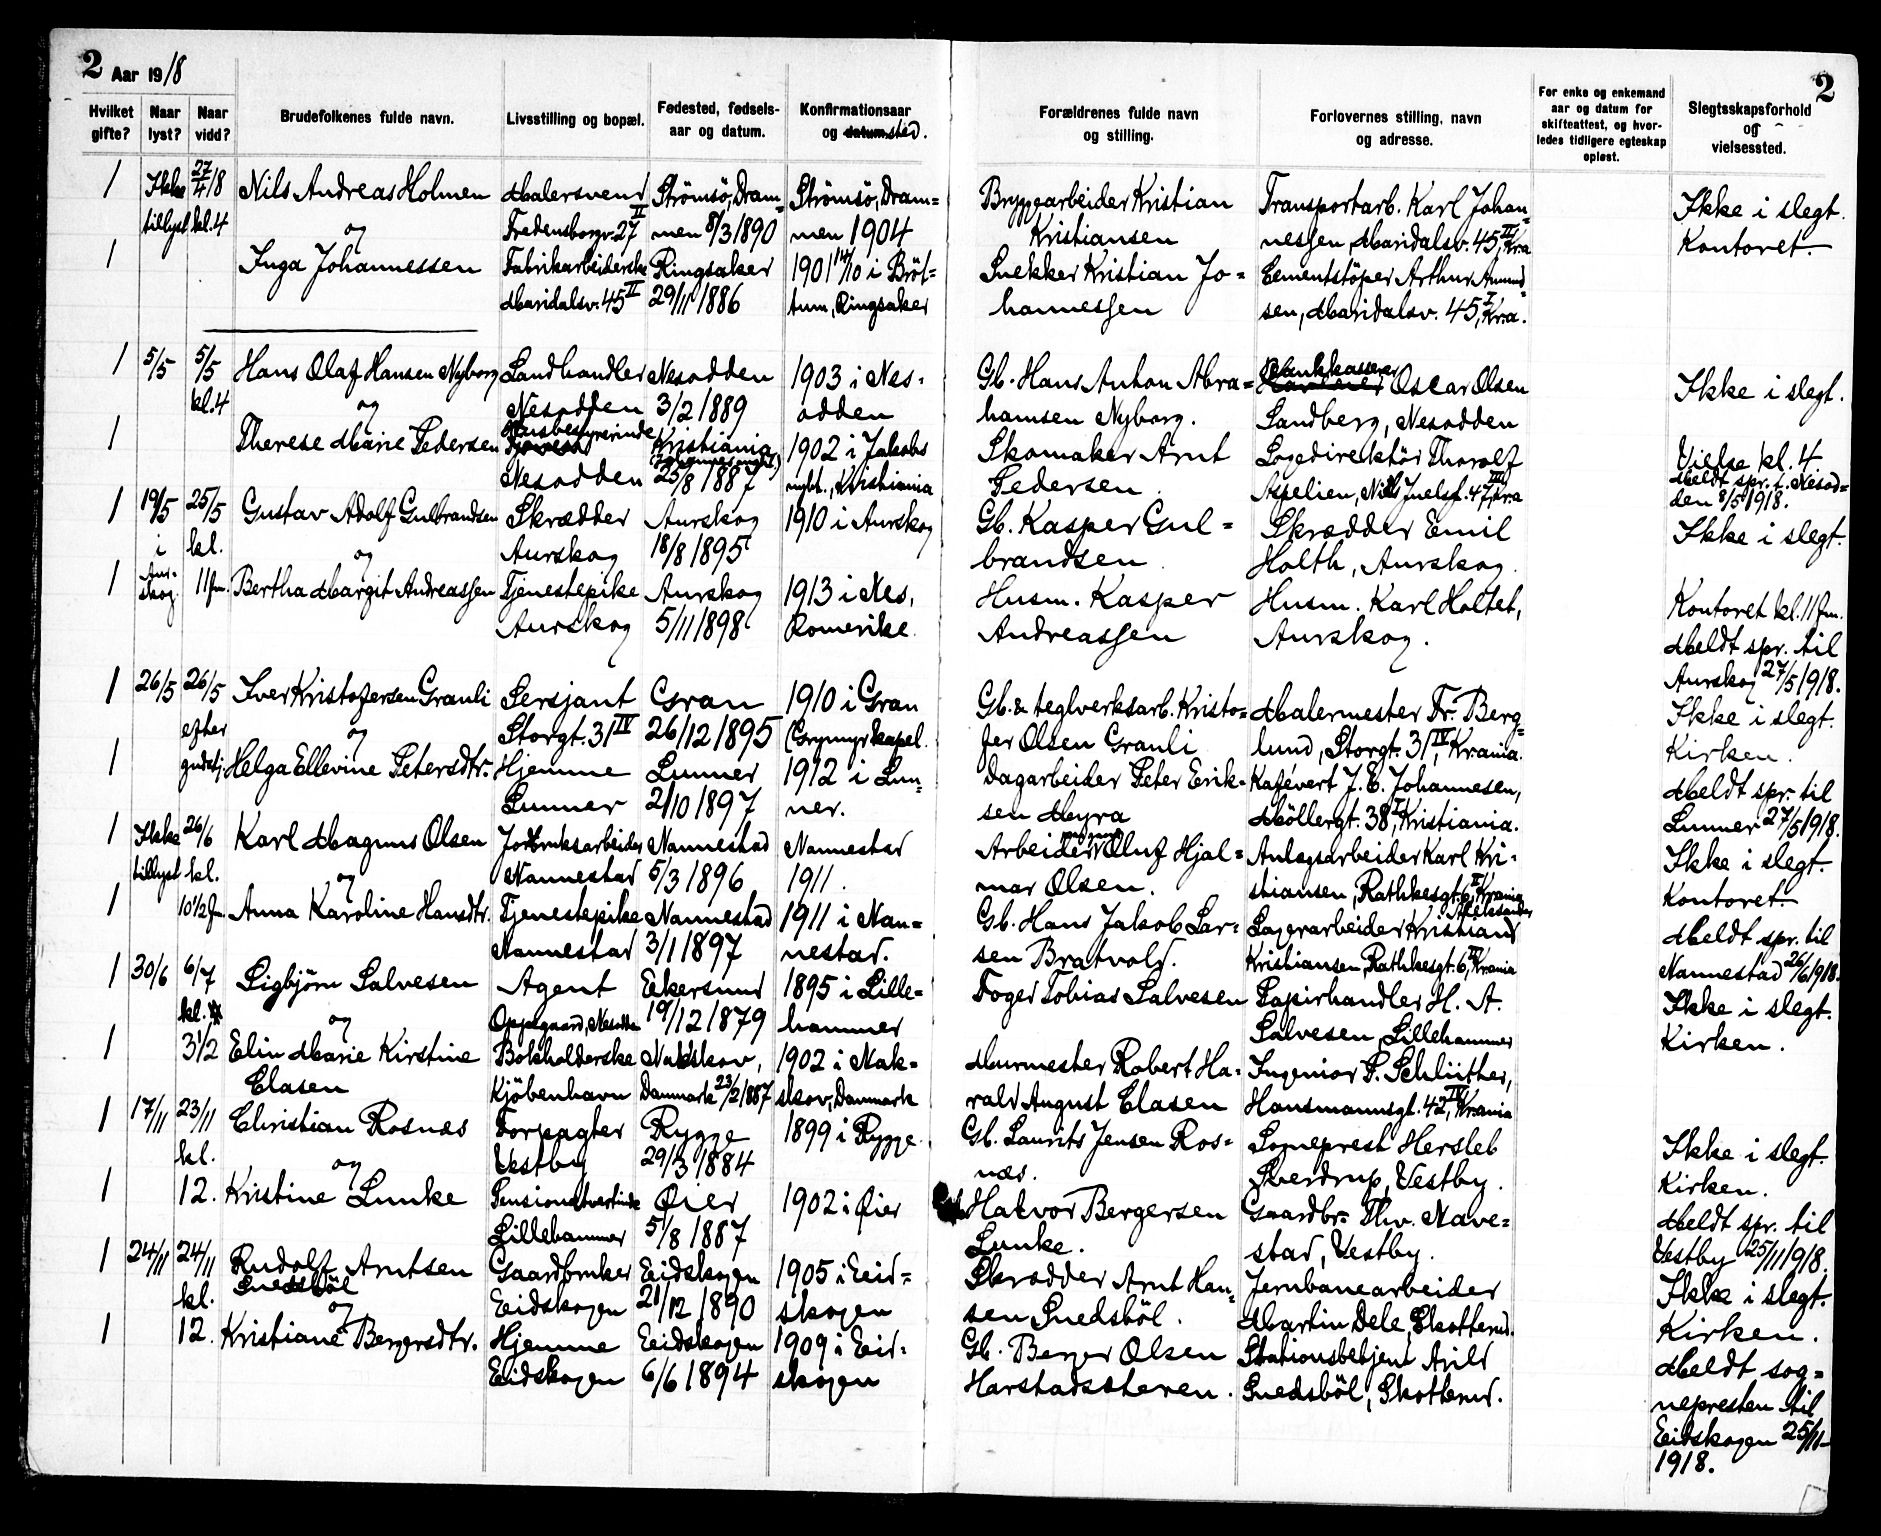 2 Aar 1918
2
Hvilket gifte?
Naar lyst?
Naar vidd?
Brudefolkenes fulde navn.
Livsstilling og bopæl.
Fødested, fødsels-
aar og datum.
Konfirmationsaar
og datum sted.
Forældrenes fulde navn
og stilling.
Forlovernes stilling, navn
og adresse.
For enke og enkemand
aar og datum for
skifteattest, og hvor-
ledes tidligere egteskap
opløst.
Slegtsskapsforhold
og
vielsessted.
1 Ikke tillyst 27/4 18 kl. 4
Nils Andreas Holmen
og
Malersvend
Fredensborgv. 27 II
Strömsö, Dram=
men 8/3 1890
Strömsö, Dram=
men 1904
Bryggearbeider Kristian
Kristiansen
Transportarb. Karl Johan=
nessen, Maridalsv. 45 II, Kra
Ikke i slegt.
Kontoret.
1
Inga Johannessen
Fabrikarbeiderske
Maridalsv. 45 II
Ringsaker
29/11 1886
1901 14/10 i Bröt=
tum, Ringsaker
Snekker Kristian Jo=
hannessen
Cementstöper Arthur Amund=
sen, Maridalsv. 45 I, Kra.
1 5/5 5/5 kl. 4
Hans Olaf Hansen Nyborg
og
Landhandler
Nesodden
Nesodden
3/2 1889
1903 i Nes=
odden
Gb. Hans Anton Abra=
hamsen Nyborg.
Bankkasserer Oscar Olsen
Sandberg, Nesodden
Ikke i slegt.
1
Therese Marie Pedersen
Husbestyrerinde
Nesodden
Kristiania
(Johannes mght.)
25/8 1887
1902 i Jakobs
mght., Kristiania
Skomaker Arnt
Pedersen.
Logedirektör Thorolf
Aspelien, Niels Juelsg. 47 III, Kra
Vielse kl. 4
Meldt spr. t. Nesod=
den 8/5 1918.
1 19/5 i Aur-skog 25/5 kl. 11 fm.
Gustav Adolf Gulbrandsen
og
Skrædder
Aurskog
Aurskog
18/8 1895
1910 i Aurskog
Gb. Kasper Gul=
brandsen.
Skrædder Emil
Holth, Aurskog.
Ikke i slegt.
1
Bertha Margit Andreassen
Tjenestepike
Aurskog
Aurskog
5/11 1898
1913 i Nes,
Romerike.
Husm. Kasper
Andreassen
Husm. Karl Holtet,
Aurskog.
Kontoret kl. 11 fm.
Meldt spr. til
Aurskog 27/5 1918.
1 26/5 26/5 efter gudstj.
Iver Kristofersen Granli
og
Sersjant
Storgt. 31 IV
Gran
26/12 1895
1910 i Gran
(Grymyr kapel.
Gb. & teglverksarb. Kristo=
fer Olsen Granli
Malermester Fr. Berg=
lund, Storgt. 31 IV, Krania.
Ikke i slegt.
Kirken.
1
Helga Ellevine Petersdtr.
Hjemme
Lunner
Lunner
2/10 1897
1912 i Lun=
ner.
Dagarbeider Peter Erik=
sen Myra
Kafévert J. E. Johannesen,
Möllergt. 38 I, Kristiania.
Meldt spr. til
Lunner 27/5 1918.
1 Ikke tillyst 26/6 kl. 10 1/2 fm.
Karl Magnus Olsen
og
Jordbruksarbeider
Nannestad
Nannestad
5/3 1896
Nannestad
1911.
Arbeider Oluf Hjal=
mar Olsen.
Anlægsarbeider Karl Kri=
stiansen, Rathkesgt. 6 II, Krania
Ikke i slegt.
Kontoret.
1
Anna Karoline Hansdtr.
Tjenestepike
Nannestad
Nannestad
3/1 1897
1911 i Nan=
nestad.
Gb. Hans Jakob Lar=
sen Bratvold.
Lagerarbeider
Kristiansen, Rathkesgt. 6 II, Krania
Meldt spr. til
Nannestad 26/6 1918.
1 30/6 6/7 kl. 3 1/2
Sigbjörn Salvesen
og
Agent
Oppegaard, Nesodden
Ekersund
19/12 1879
1895 i Lille=
hammer
Foged Tobias Salvesen
Papirhandler H. A.
Salvesen, Lillehammer
Ikke i slegt.
Kirken.
1
Elin Marie Kirstine
Clasen
Bokholderske
Kjöbenhavn
Nakskov,
Danmark 23/2 1887
1902 i Nak=
skov, Danmark
Murmester Robert Ha=
rald August Clasen
Ingeniör P. Schlüther,
Hansmannsgt. 42 IV, Krania
1 17/11 23/11 kl. 12.
Christian Rosnæs
og
Forpagter
Vestby
Rygge
29/3 1884
1899 i Rygge.
Gb. Laurits Jensen Ros=
næs.
Sogneprest Hersleb
Sverdrup, Vestby.
Ikke i slegt.
Kirken.
1
Kristine Lunke
Pensionatvertinde
Lillehammer
Öier
5/8 1887
1902 i Öier
Halvor Bergersen
Lunke.
Gaardbr. Thv. Nave=
stad, Vestby.
Meldt spr. til
Vestby 25/11 1918.
1 24/11 24/11 kl. 12.
Rudolf Arntsen
Snedsböl
og
Gaardbruker
Eidskogen
Eidskogen
21/12 1890
1905 i Eid=
skogen
Skrædder Arnt Han=
sen Snedsböl.
Jernbanearbeider
Martin Dele, Skotterud.
Ikke i slegt.
Kirken.
1
Kristiane Bergersdtr.
Hjemme
Eidskogen
Eidskogen
6/6 1894
1909 i Eid=
skogen
Gb. Berger Olsen
Harstadsæteren.
Stationsbetjent Arild
Snedsböl, Skotterud.
Meldt sog=
nepresten til
Eidskogen 25/11
1918.